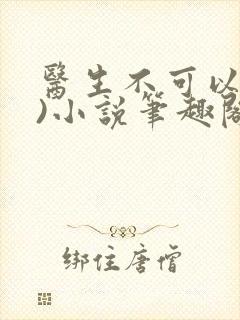 醫生不可以
)小說筆趣閣
綁住唐僧